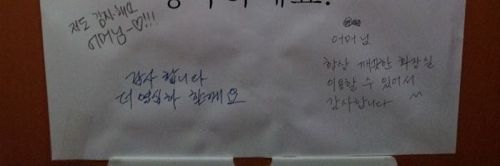 저도 감사해요
어머님~♡!!!
감사 합니다
더 열심히 할께요
어머님
항상 깨끗한 화장실
이용할 수 있어서
감사합니다